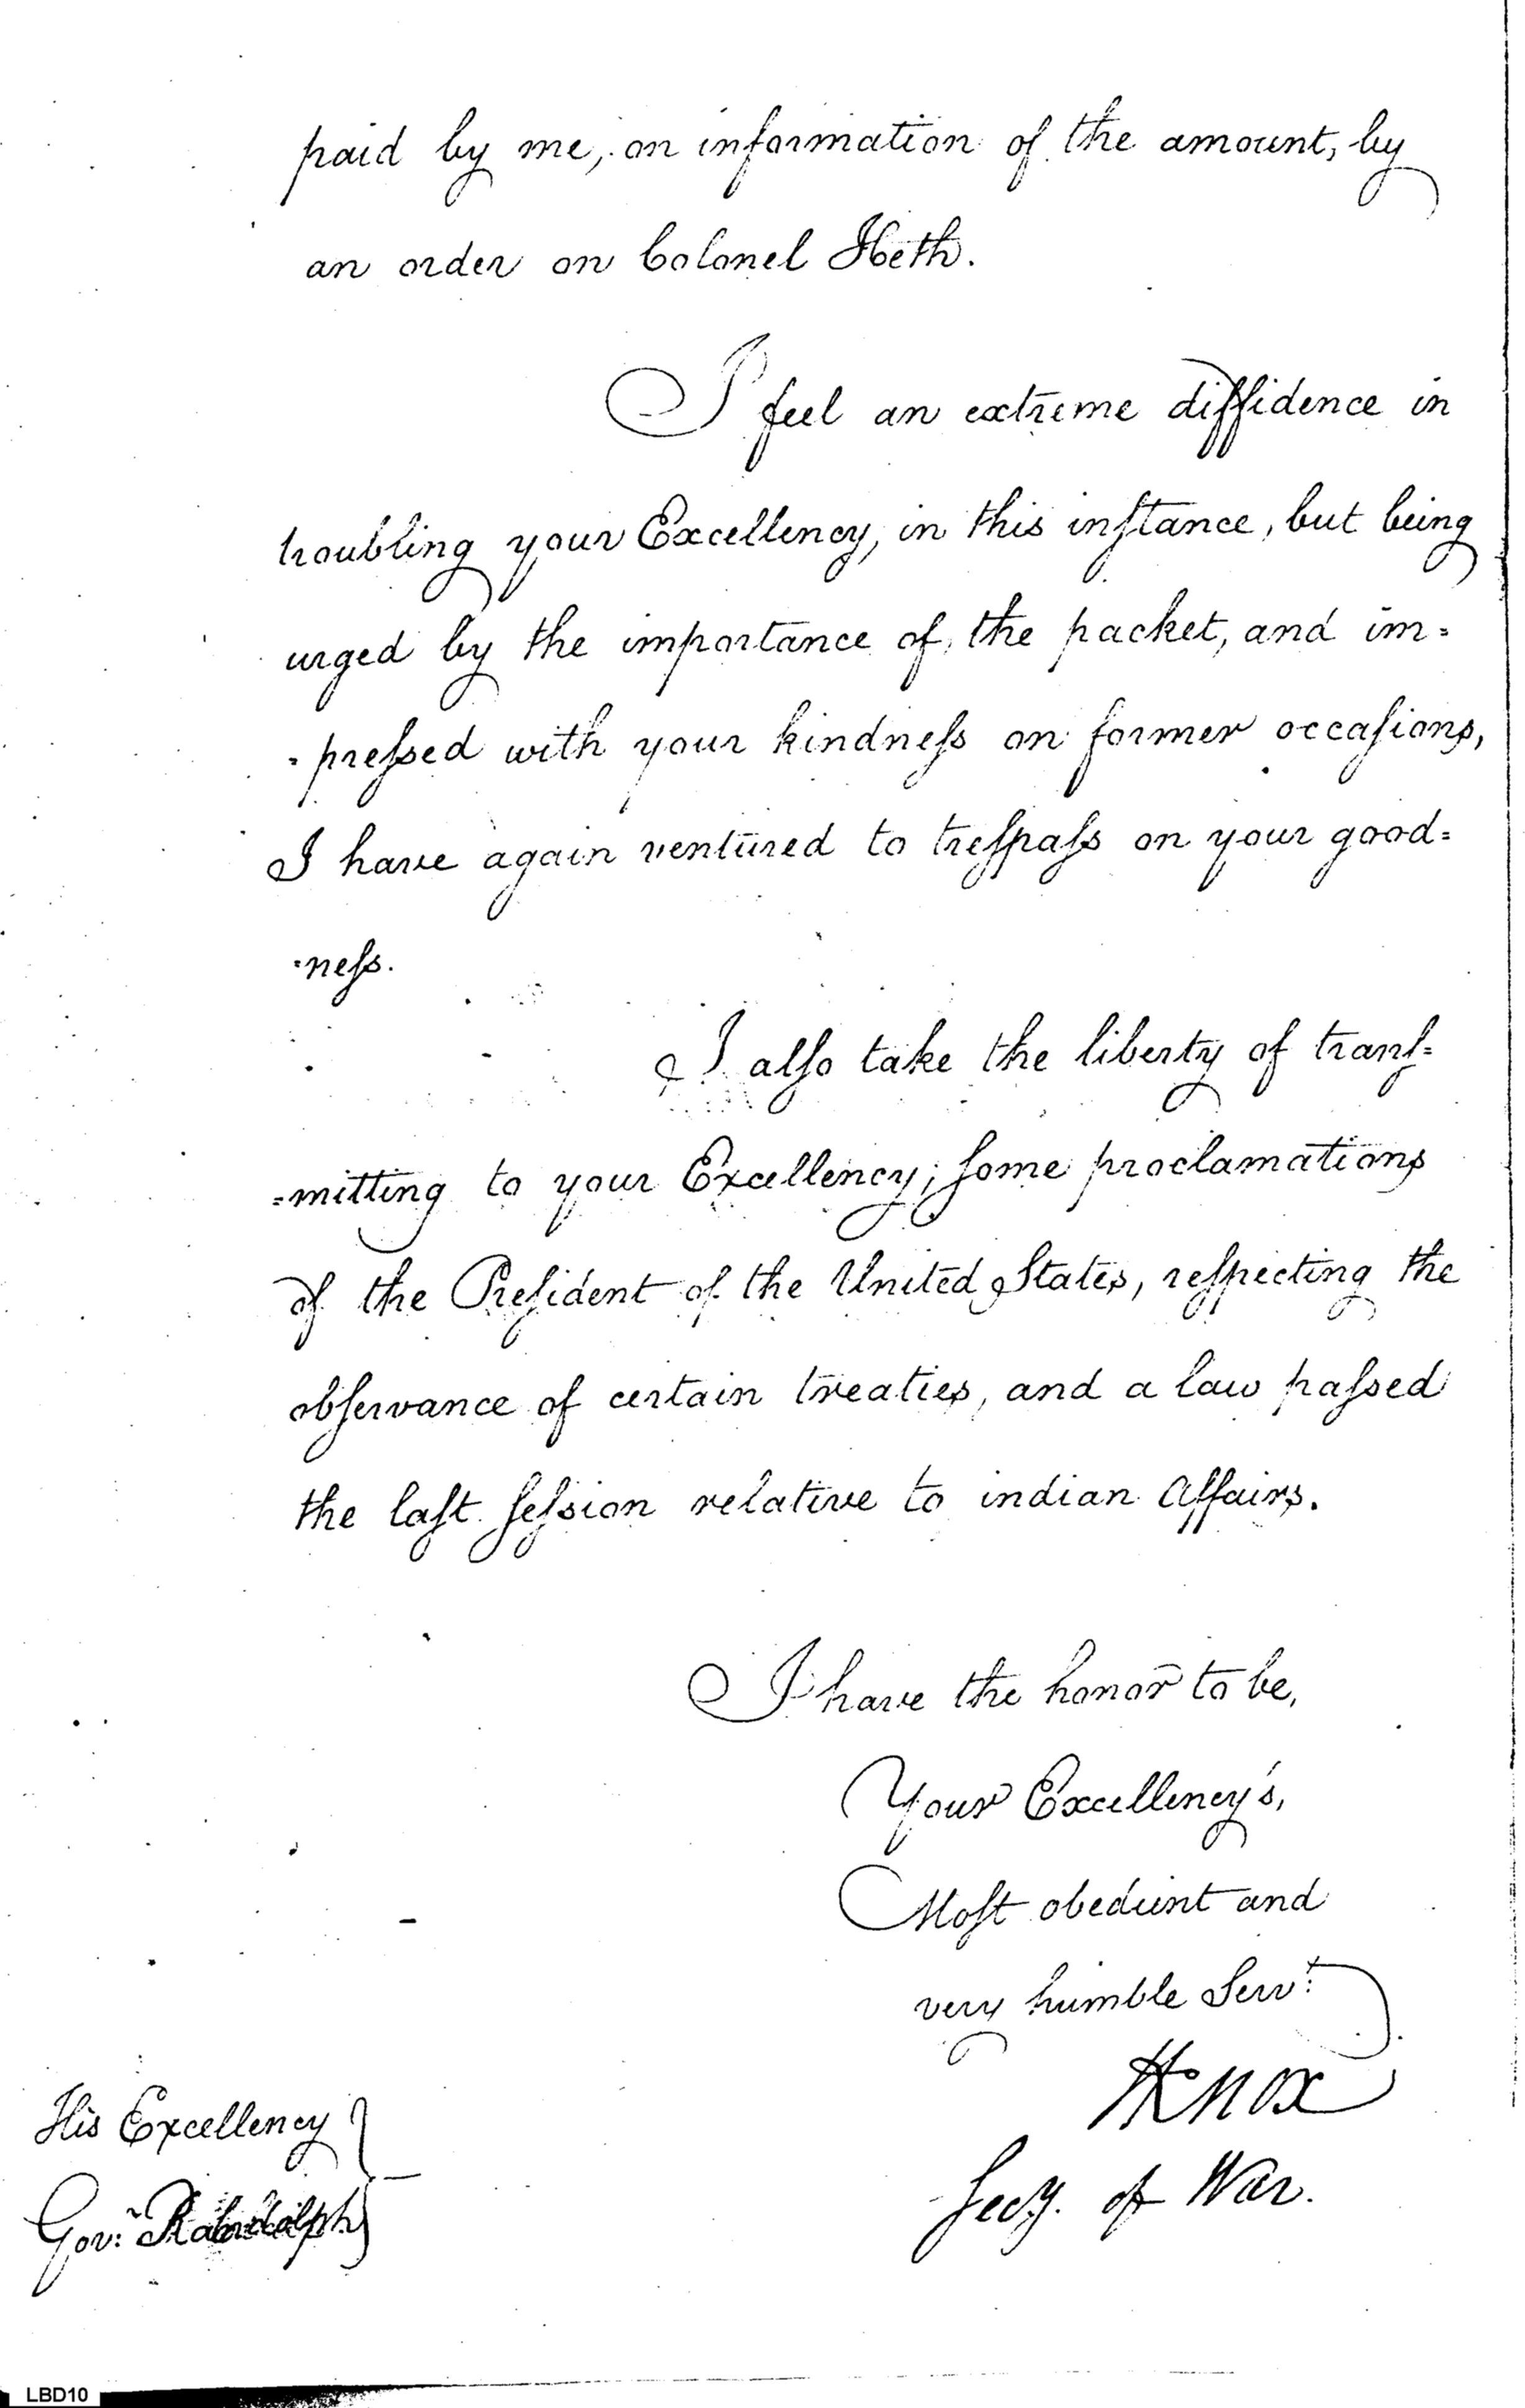 paid by me, on information of the amount, by
an order on Colonel Heth.
I feel an extreme diffidence in
troubling your Excellency, in this inſtance, but being
urged by the importance of, the packet, and im=
=preſsed with your kindneſs on former occaſions,
I have again ventured to treſpaſs on your good=
=neſs.
I alſo take the liberty of tranſ=
=mitting to your Excellency, ſome proclamations
of the Preſident of the United States, reſpecting the
obſervance of certain treaties, and a law paſsed
the laſt ſeſsion relative to indian Affairs.
I have the honor to be,
Your Excellency's,
Moſt obedient and
very humble Servt.
HKnox
Secy. of War.
His Excellency
Govr. Randolph
LBD10